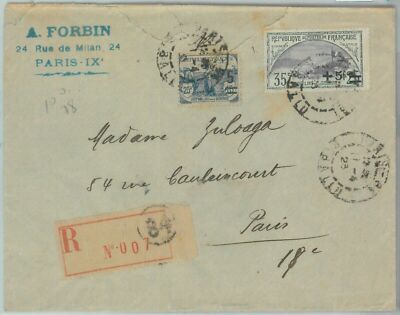 A. FORBIN
24 Rue de Milan, 24
PARIS-IXᵉ
RÉPUBLIQUE FRANÇAISE
35c
+5c
Madame Zuloaga
54 rue Caulaincourt
Paris
18e
R
No. 007
64